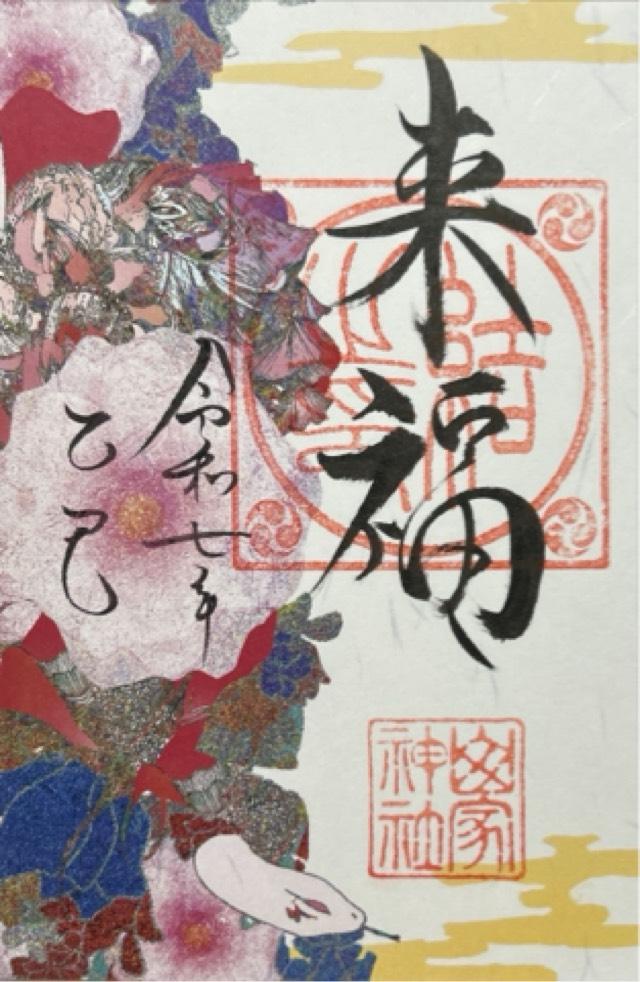 来福
令和七年
乙巳
神社